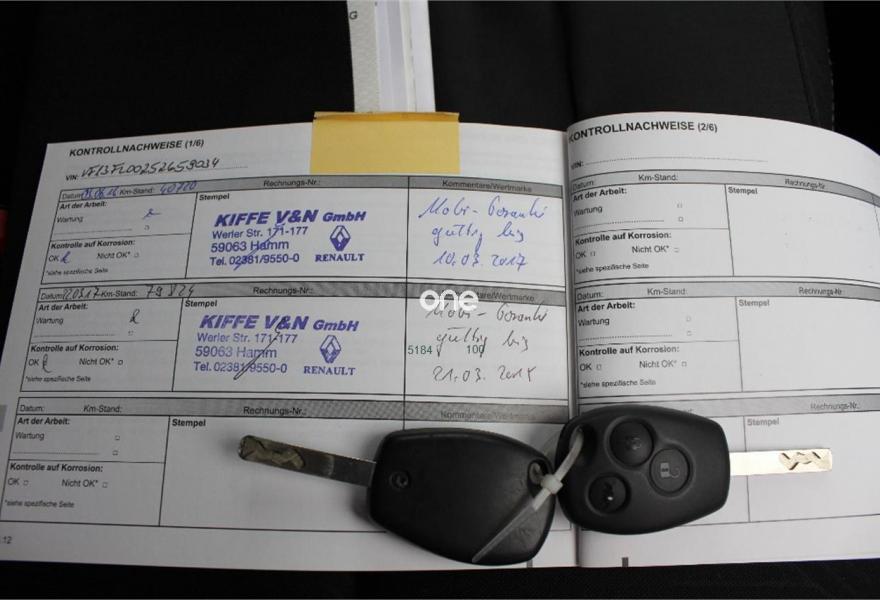 G
KONTROLLNACHWEISE (1/6)
VIN:
Datum: Km-Stand: 40720 Rechnungs-Nr.: Kommentare/Wertmarke
Art der Arbeit:
Wartung
Kontrolle auf Korrosion:
OK Nicht OK*
*siehe spezifische Seite
Stempel
KIFFE V&N GmbH
Werler Str. 171-177
59063 Hamm
Tel. 02381/9550-0
RENAULT
Mobi-Garantie
gültig bis
10.03.2017
Datum: Km-Stand: 79824 Rechnungs-Nr.: Kommentare/Wertmarke
Art der Arbeit:
Wartung
Kontrolle auf Korrosion:
OK Nicht OK*
*siehe spezifische Seite
Stempel
KIFFE V&N GmbH
Werler Str. 171-177
59063 Hamm
Tel. 02381/9550-0
RENAULT
Mobi-Garantie
gültig bis
5184 100
21.03.2018
one
Datum: Km-Stand: Rechnungs-Nr.: Kommentare/Wertmarke
Art der Arbeit:
Wartung
Kontrolle auf Korrosion:
OK Nicht OK*
*siehe spezifische Seite
Stempel
.12
KONTROLLNACHWEISE (2/6)
VIN:
Datum: Km-Stand: Rechnungs-Nr.
Art der Arbeit:
Wartung
Kontrolle auf Korrosion:
OK Nicht OK*
*siehe spezifische Seite
Stempel
Datum: Km-Stand: Rechnungs-Nr.
Art der Arbeit:
Wartung
Kontrolle auf Korrosion:
OK Nicht OK*
*siehe spezifische Seite
Stempel
Datum: Km-Stand: Rechnungs-Nr.:
Stempel